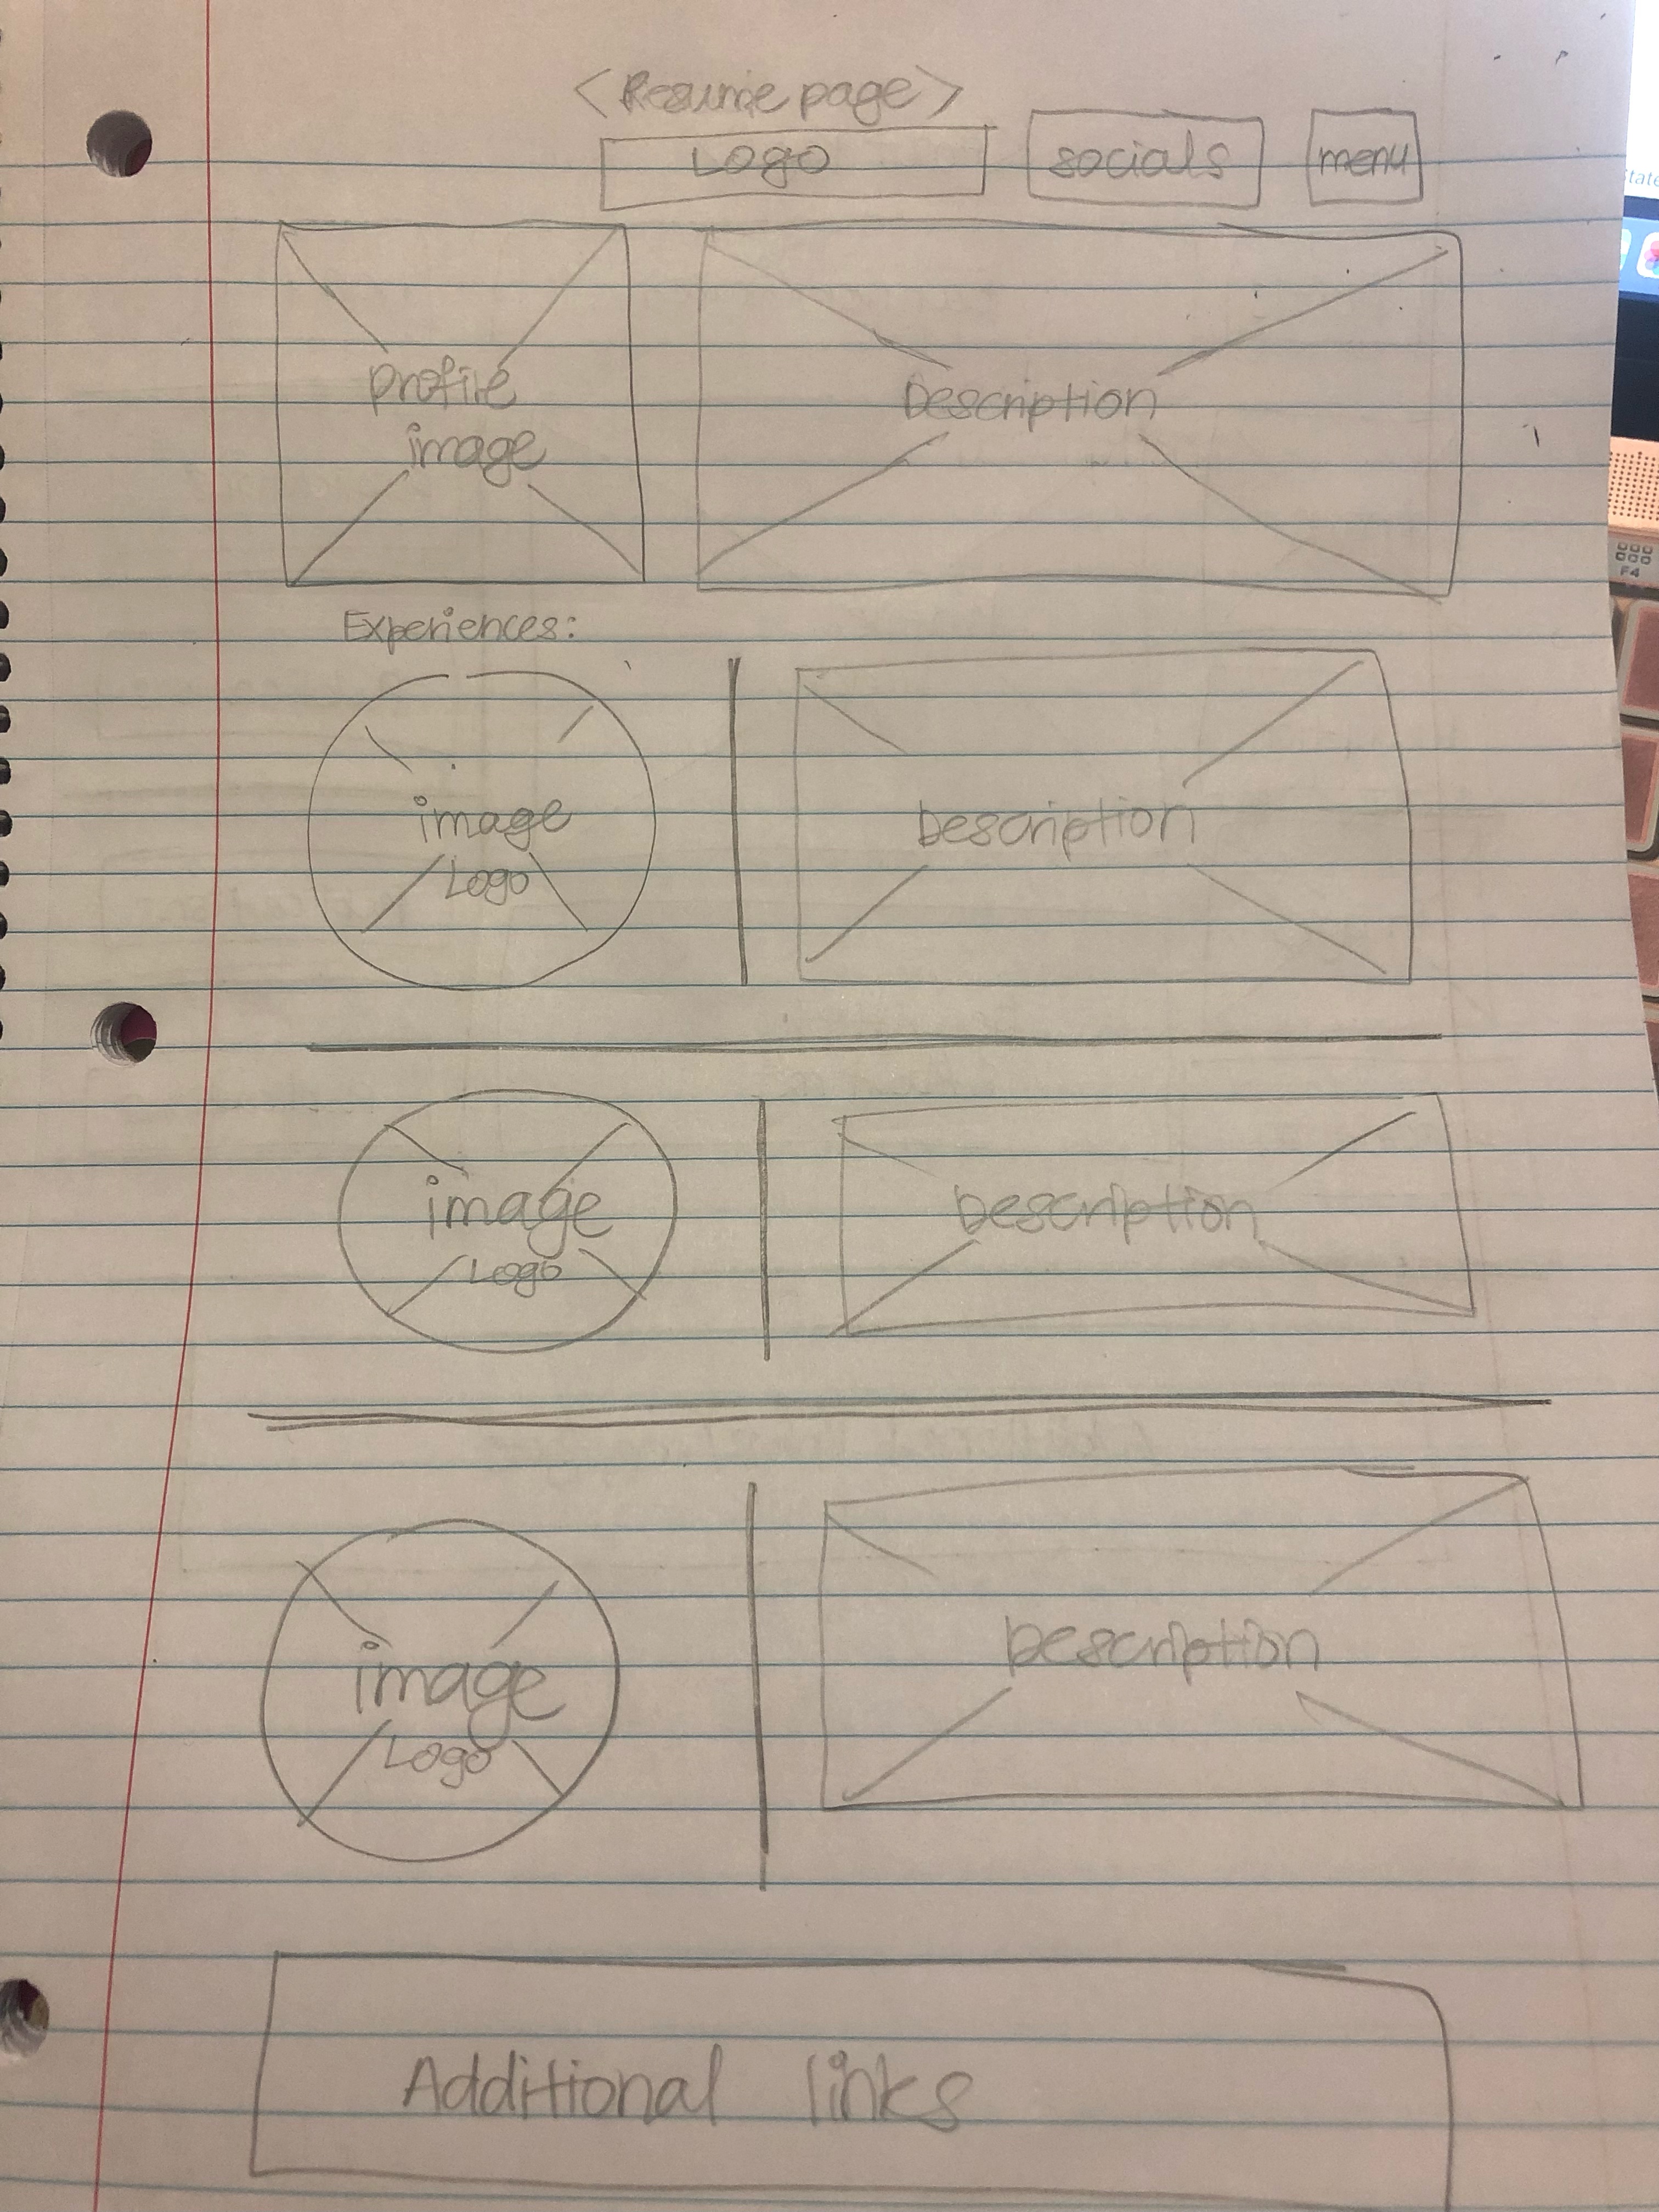 <Resume page>
Logo
socials
menu
profile
image
Description
Experiences:
image
Logo
Description
image
Logo
Description
image
Logo
Description
Additional links
F4